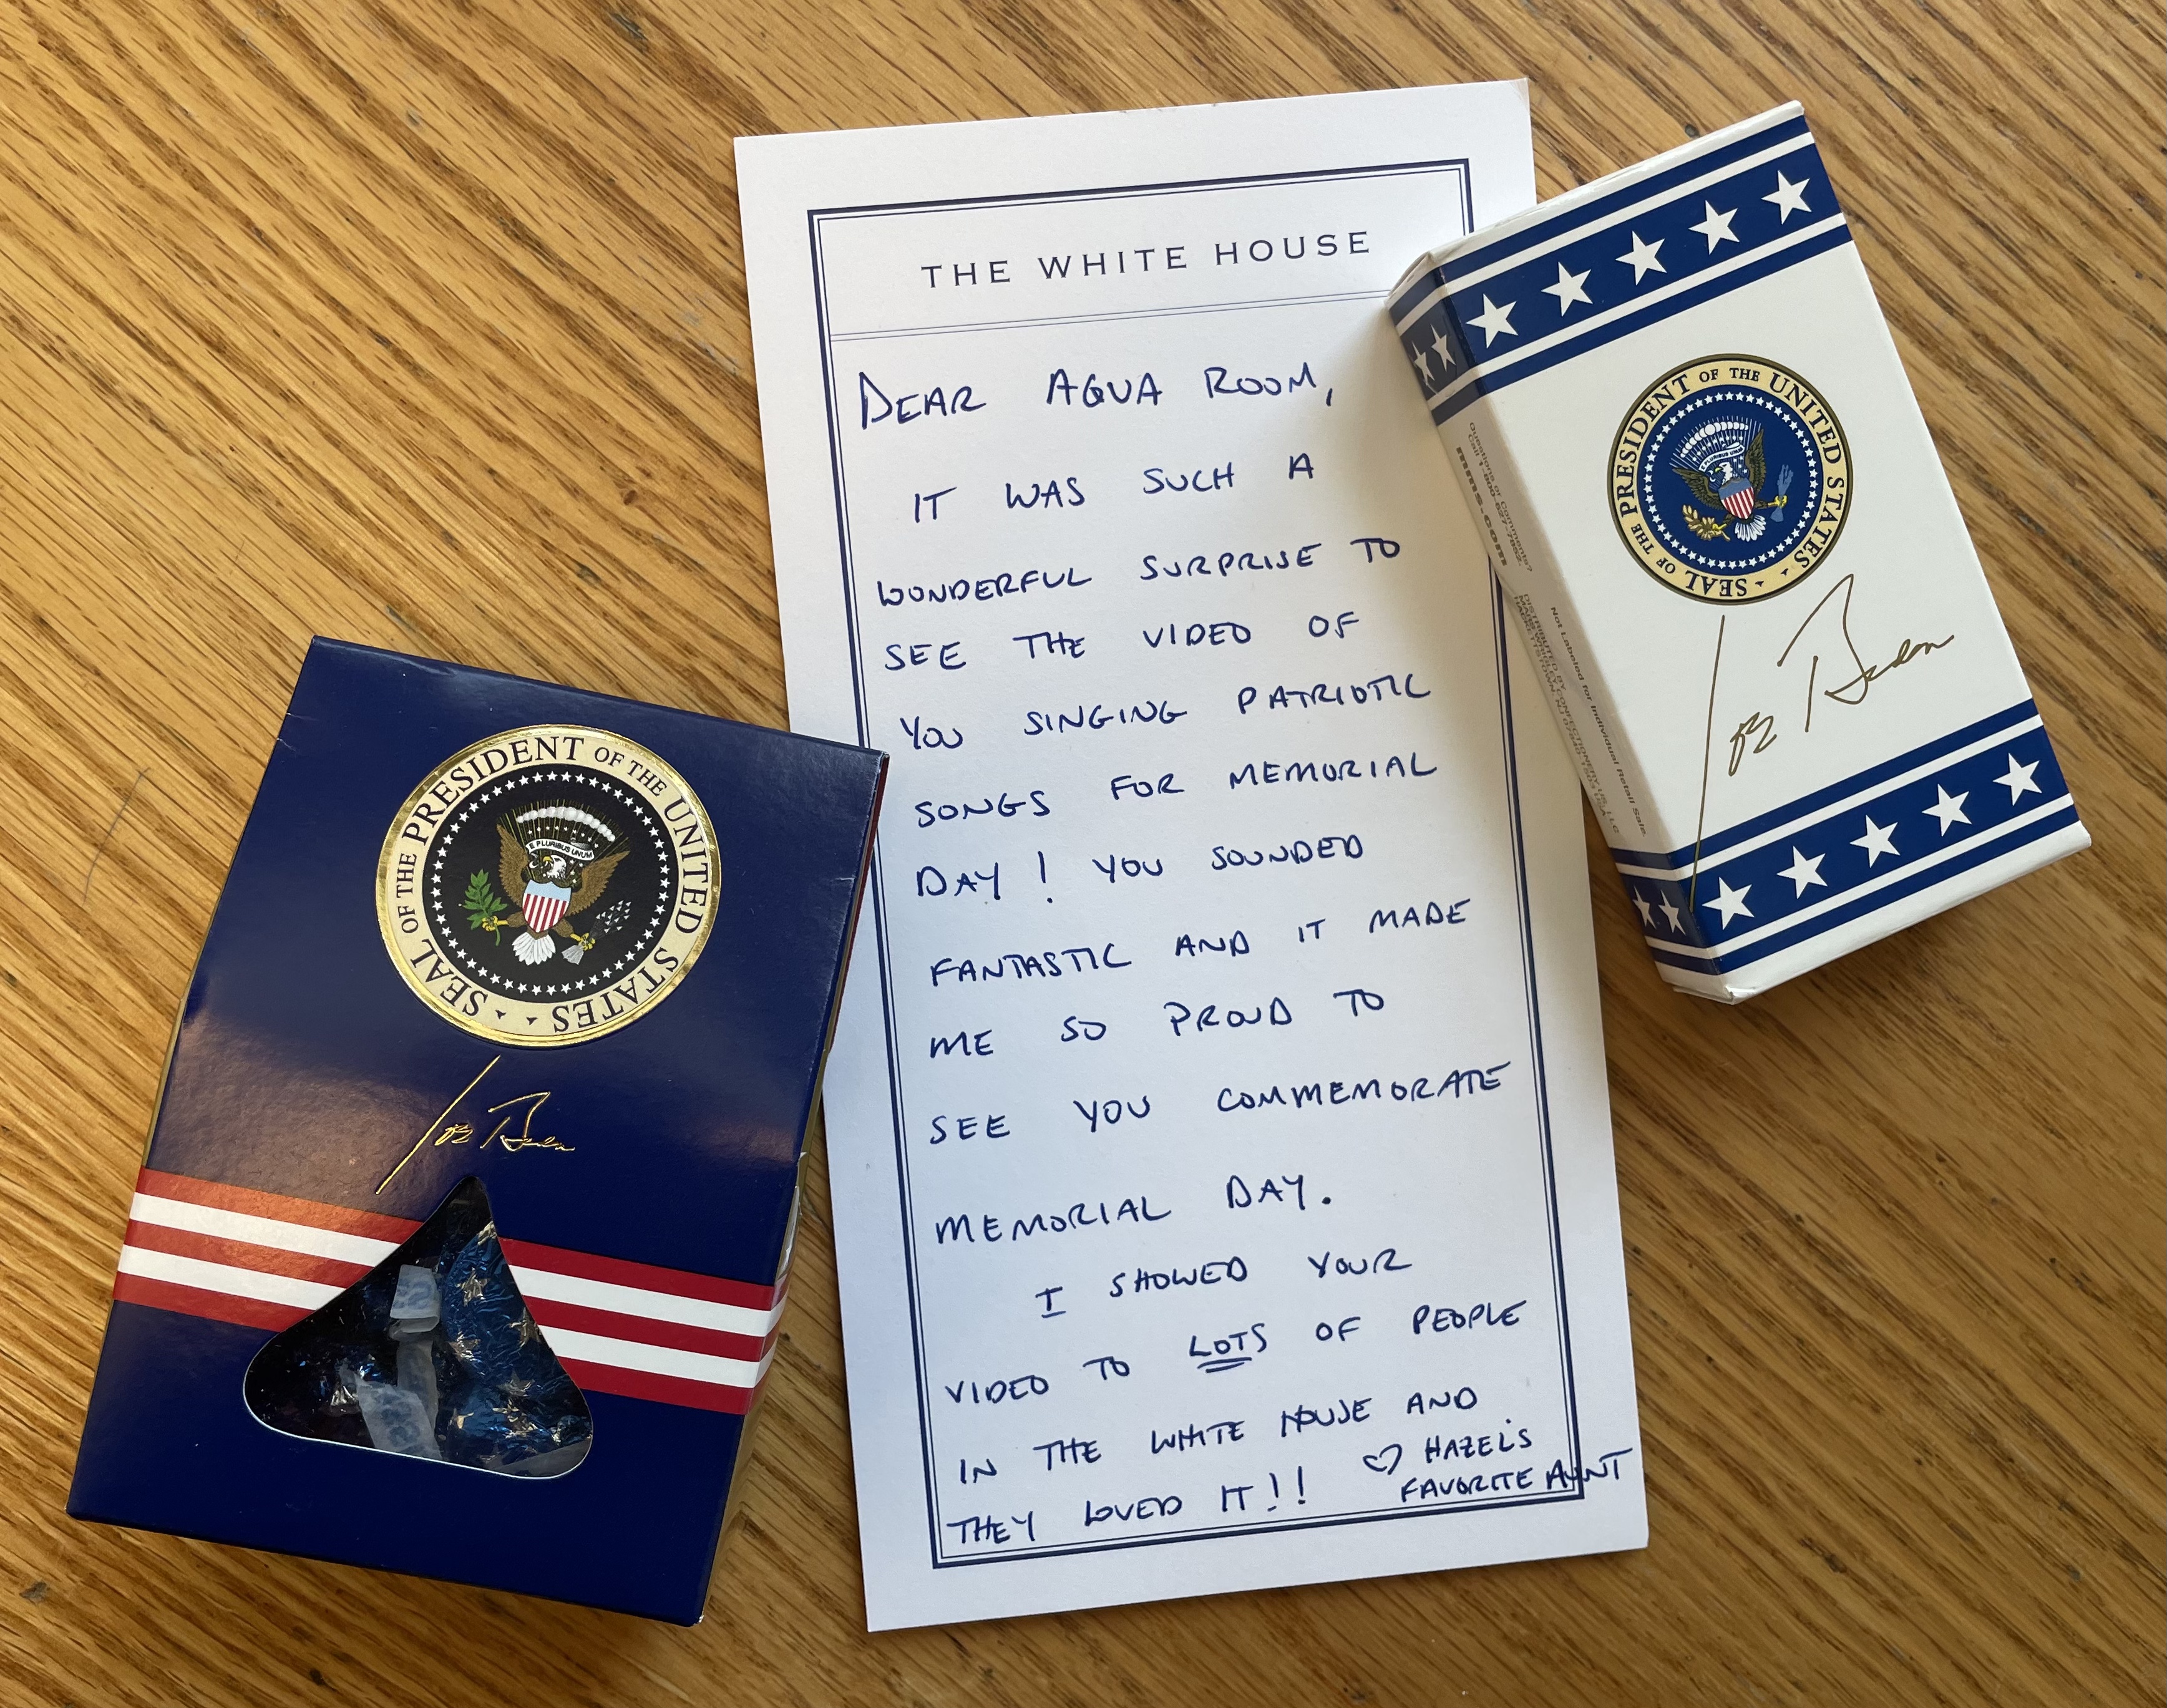 THE WHITE HOUSE
DEAR AQUA ROOM,
IT WAS SUCH A
WONDERFUL SURPRISE TO
SEE THE VIDEO OF
YOU SINGING PATRIOTIC
SONGS FOR MEMORIAL
DAY! YOU SOUNDED
FANTASTIC AND IT MADE
ME SO PROUD TO
SEE YOU COMMEMORATE
MEMORIAL DAY.
I SHOWED YOUR
VIDEO TO LOTS OF PEOPLE
IN THE WHITE HOUSE AND
THEY LOVED IT!!
♡ HAZEL'S
FAVORITE AUNT
SEAL OF THE PRESIDENT OF THE UNITED STATES
E PLURIBUS UNUM
Joe Biden
SEAL OF THE PRESIDENT OF THE UNITED STATES
E PLURIBUS UNUM
Joe Biden
Questions or Comments?
Call 1-800-627-7852.
mms.com
Not Labeled for Individual Retail Sale.
DISTRIBUTED BY